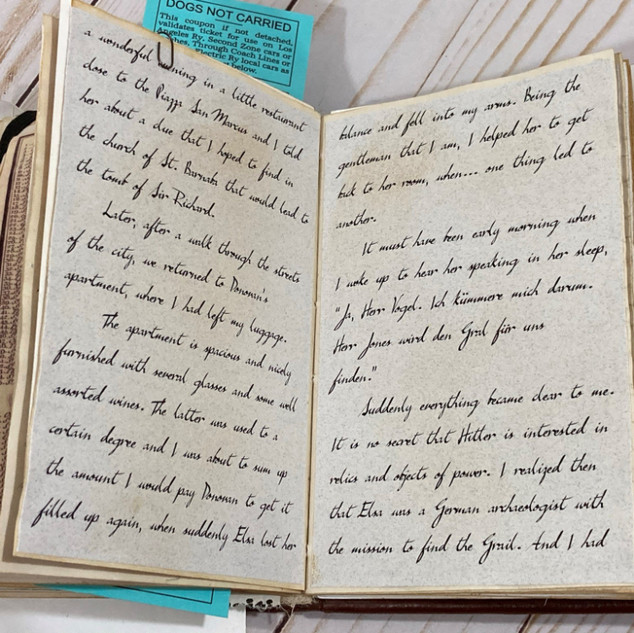 DOGS NOT CARRIED
This coupon if not detached,
validates ticket for use on Los
Angeles Ry. Second Zone cars or
Through Coach Lines or
Electric Ry local cars as
below.
a wonderful evening in a little restaurant
close to the Piazza San Marcus and I told
her about a clue that I hoped to find in
the church of St. Barnaba that would lead to
the tomb of Sir Richard.
Later, after a walk through the streets
of the city, we returned to Donovan's
apartment, where I had left my luggage.
The apartment is spacious and nicely
furnished with several glasses and some well
assorted wines. The latter was used to a
certain degree and I was about to sum up
the amount I would pay Donovan to get it
filled up again, when suddenly Elsa lost her
balance and fell into my arms. Being the
gentleman that I am, I helped her to get
back to her room, when... one thing led to
another.
It must have been early morning when
I woke up to hear her speaking in her sleep,
"Ja, Herr Vogel. Ich kümmere mich darum.
Herr Jones wird den Gral für uns
finden."
Suddenly everything became clear to me.
It is no secret that Hitler is interested in
relics and objects of power. I realized then
that Elsa was a German archaeologist with
the mission to find the Grail. And I had